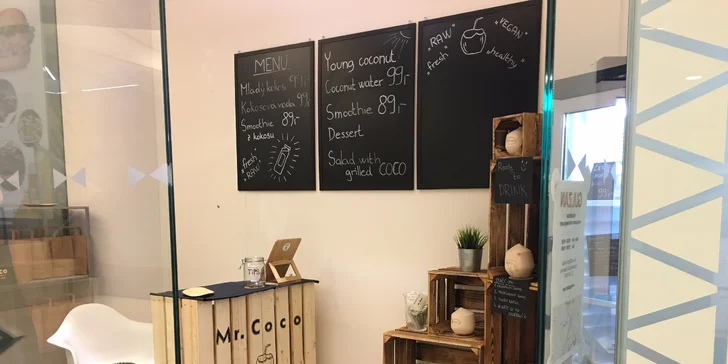 MENU
Mladý kokos 99,-
Kokosová voda 99,-
Smoothie 89,-
z kokosu
fresh
RAW
Young coconut
Coconut water 99,-
Smoothie 89,-
Dessert
Salad with
grilled COCO
RAW
fresh
VEGAN
healthy
Ready
to
DRINK
TIPS
Mr. Coco